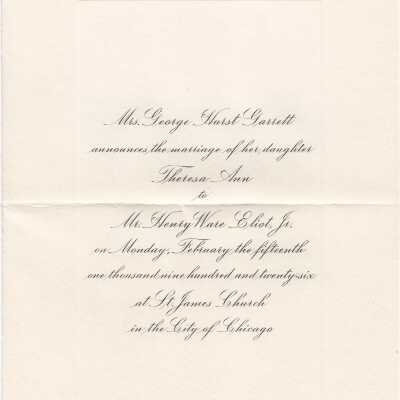 Mrs. George Hurst Garrett
announces the marriage of her daughter
Theresa Ann
to
Mr. Henry Ware Eliot, Jr.
on Monday, February the fifteenth
one thousand nine hundred and twenty-six
at St. James Church
in the City of Chicago